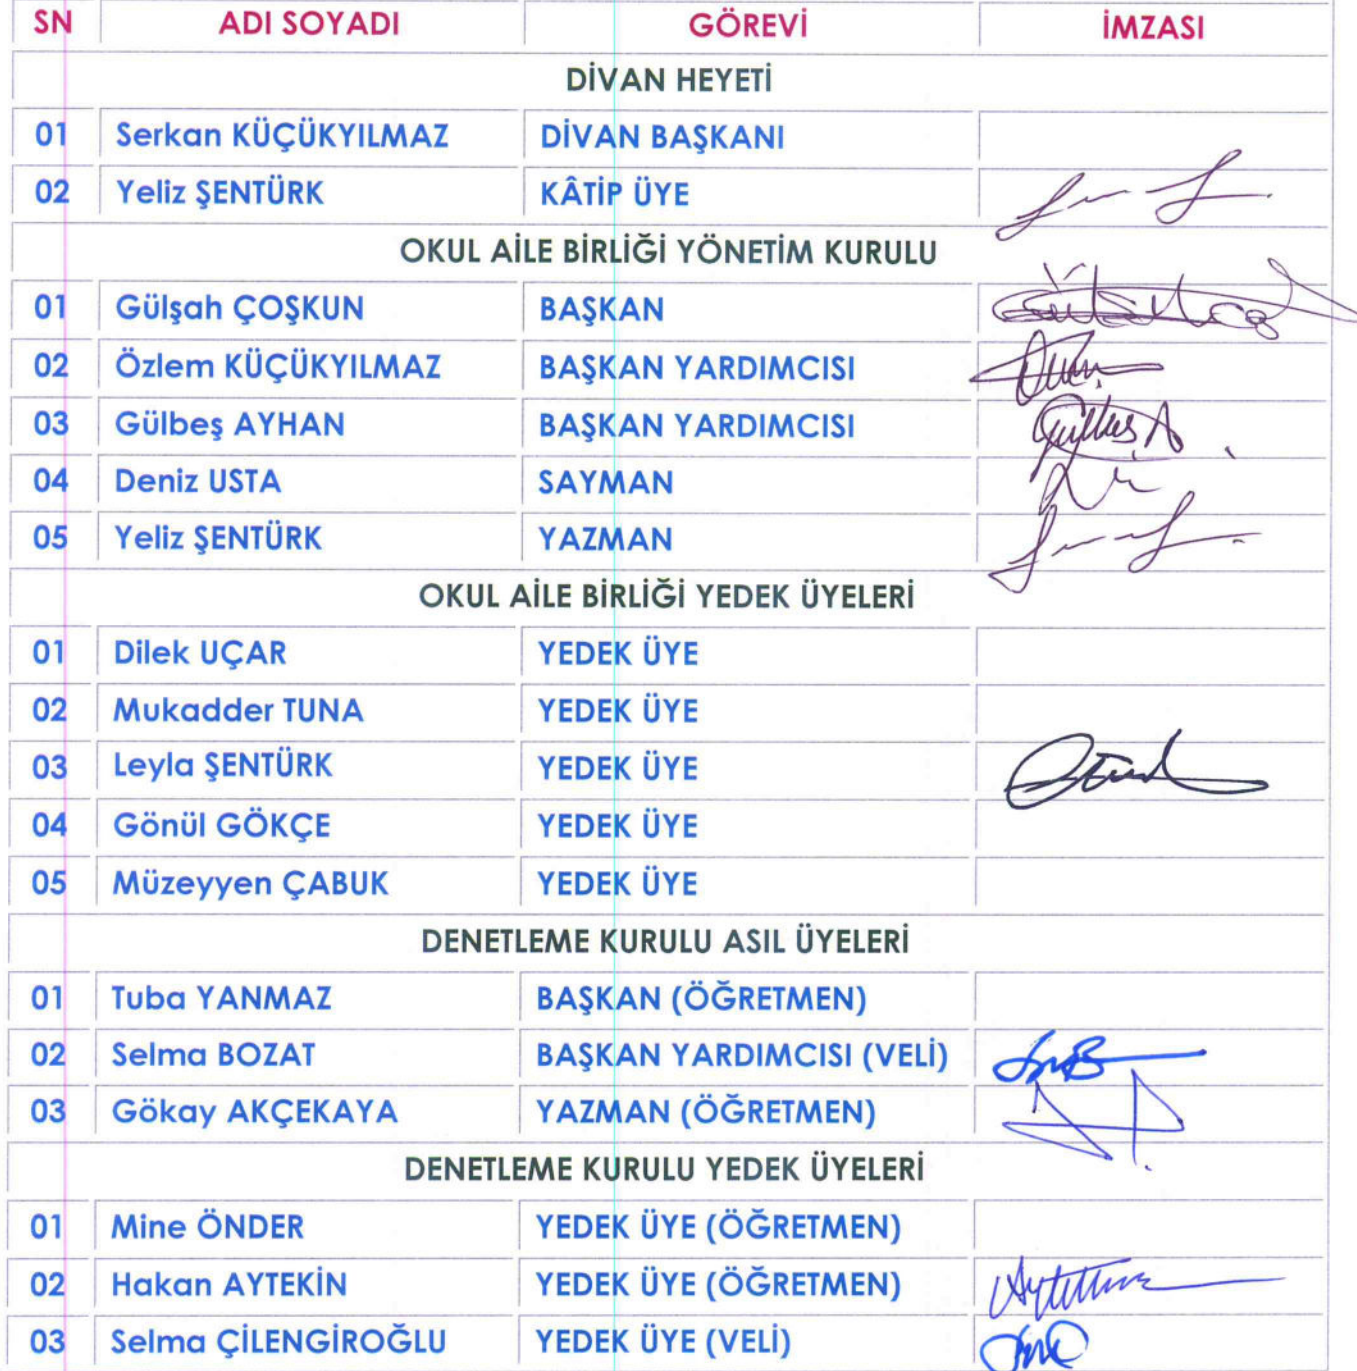 SN ADI SOYADI GÖREVİ İMZASI
DİVAN HEYETİ
01 Serkan KÜÇÜKYILMAZ DİVAN BAŞKANI
02 Yeliz ŞENTÜRK KÂTİP ÜYE
OKUL AİLE BİRLİĞİ YÖNETİM KURULU
01 Gülşah ÇOŞKUN BAŞKAN
02 Özlem KÜÇÜKYILMAZ BAŞKAN YARDIMCISI
03 Gülbeş AYHAN BAŞKAN YARDIMCISI
04 Deniz USTA SAYMAN
05 Yeliz ŞENTÜRK YAZMAN
OKUL AİLE BİRLİĞİ YEDEK ÜYELERİ
01 Dilek UÇAR YEDEK ÜYE
02 Mukadder TUNA YEDEK ÜYE
03 Leyla ŞENTÜRK YEDEK ÜYE
04 Gönül GÖKÇE YEDEK ÜYE
05 Müzeyyen ÇABUK YEDEK ÜYE
DENETLEME KURULU ASIL ÜYELERİ
01 Tuba YANMAZ BAŞKAN (ÖĞRETMEN)
02 Selma BOZAT BAŞKAN YARDIMCISI (VELİ)
03 Gökay AKÇEKAYA YAZMAN (ÖĞRETMEN)
DENETLEME KURULU YEDEK ÜYELERİ
01 Mine ÖNDER YEDEK ÜYE (ÖĞRETMEN)
02 Hakan AYTEKİN YEDEK ÜYE (ÖĞRETMEN)
03 Selma ÇİLENGİROĞLU YEDEK ÜYE (VELİ)